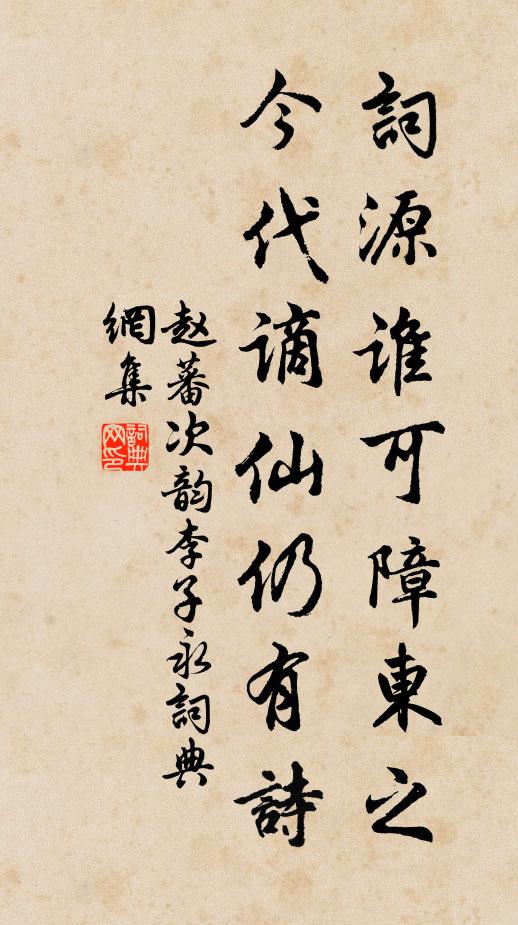 詞源谁可障東之
今代谪仙仍有詩
赵蕃次韵李子永詞典
網集
詞典
网印